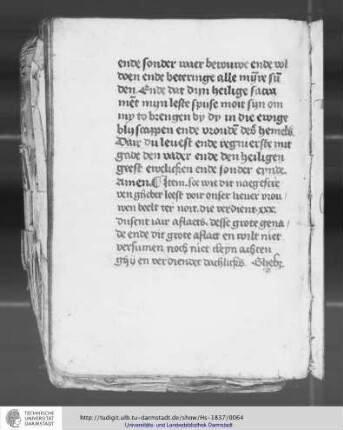 ende sonder waer berouwe ende vol
doen ende beteringe alle mijnre sun
den. Ende dat dijn heilige sacra
ment mijn leste spijse moit sijn om
my to brengen by dy in die ewige
blijscappen ende vroude des hemels.
Daer du levest ende regnierste mit
gade den vader ende den heiligen
geest ewelicken ende sonder eynde.
Amen. Item soe wie dit naegescre
ven gebet leest voir onser liever vrou
wen beelt ter noit. die verdient xxx.
dusent iair aflaets. desse grote gena
de ende dit grote aflaet en wilt niet
versumen noch niet cleyn achten
ghy en verdientet dachlicks. Ghebz
TECHNISCHE
UNIVERSITÄT
DARMSTADT
http://tudigit.ulb.tu-darmstadt.de/show/Hs-1837/0064
Universitäts- und Landesbibliothek Darmstadt